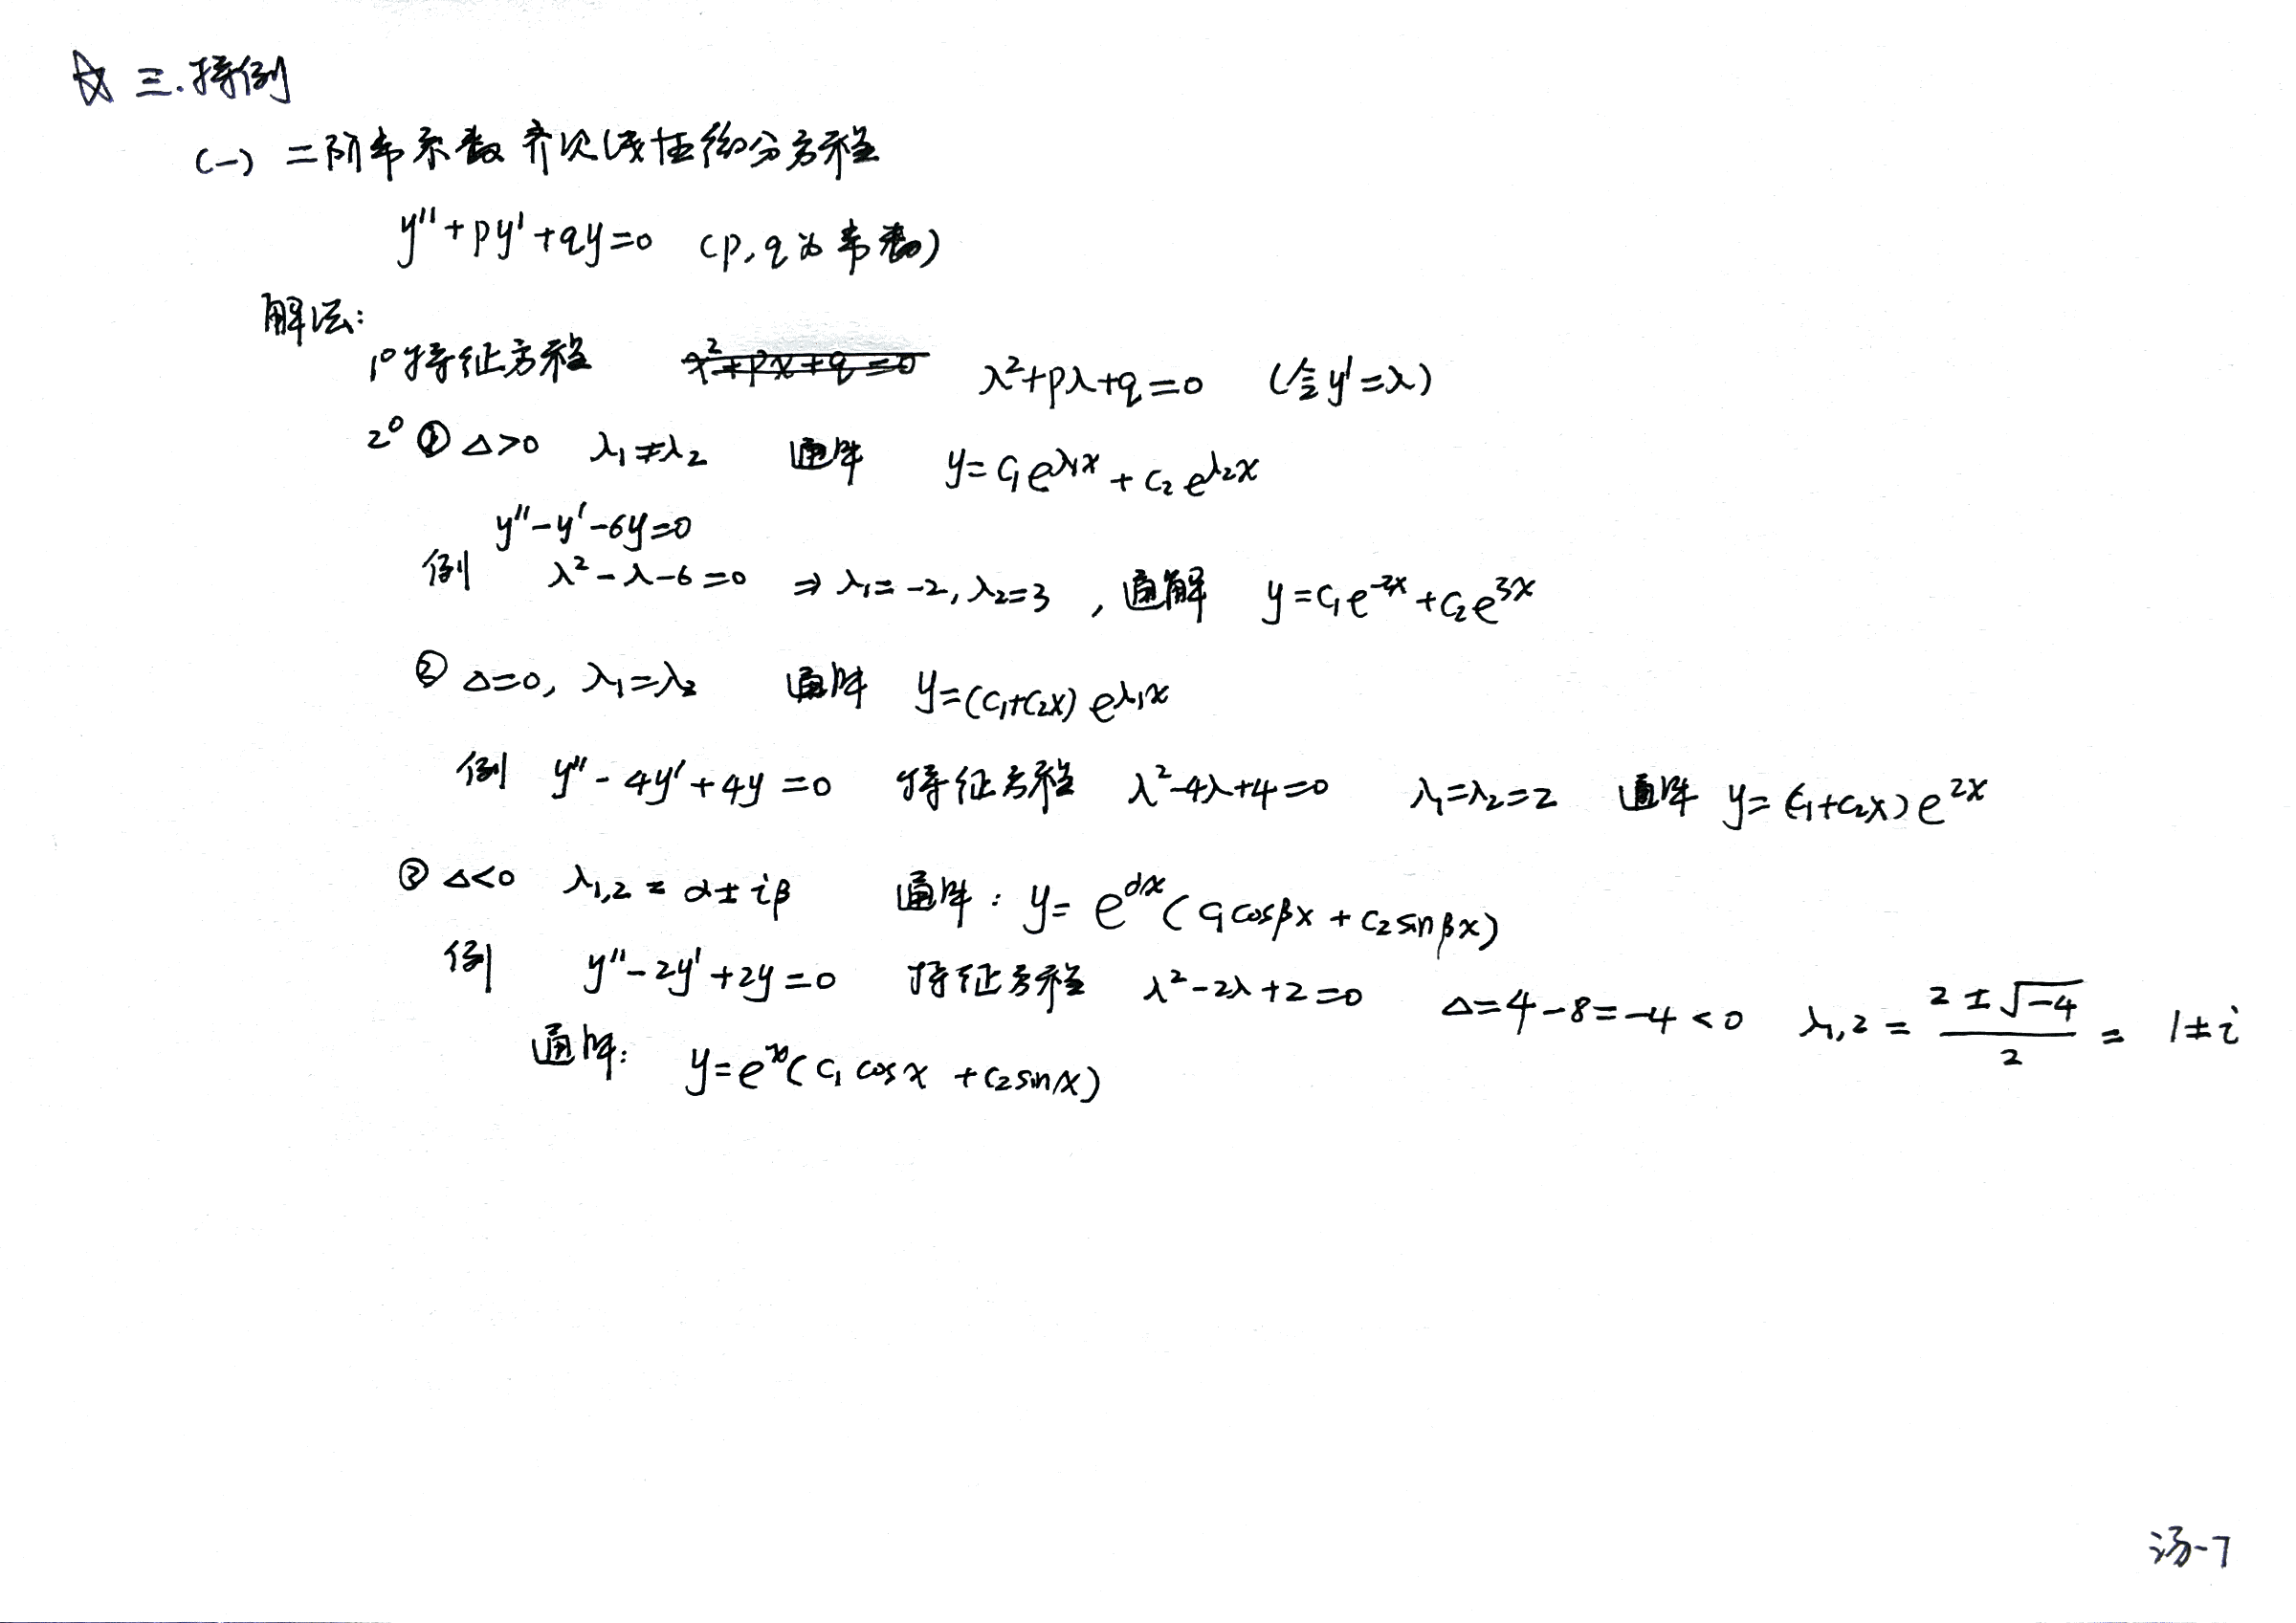 ☆ 三.特例
(一) 二阶常系数齐次线性微分方程
y''+py'+qy=0 (p,q为常数)
解法:
1° 特征方程 x²+px+q=0 λ²+pλ+q=0 (令y'=λ)
2° ① Δ>0 λ₁≠λ₂ 通解 y=C₁e^{λ₁x}+C₂e^{λ₂x}
y''-y'-6y=0
例 λ²-λ-6=0 ⇒ λ₁=-2, λ₂=3 , 通解 y=C₁e^{-2x}+C₂e^{3x}
② Δ=0, λ₁=λ₂ 通解 y=(C₁+C₂x)e^{λ₁x}
例 y''-4y'+4y=0 特征方程 λ²-4λ+4=0 λ₁=λ₂=2 通解 y=(C₁+C₂x)e^{2x}
③ Δ<0 λ₁,₂=α±iβ 通解: y=e^{αx}(C₁cosβx+C₂sinβx)
例 y''-2y'+2y=0 特征方程 λ²-2λ+2=0 Δ=4-8=-4<0 λ₁,₂=\frac{2±√-4}{2}=1±i
通解: y=e^x(C₁cosx+C₂sinx)
汤-7